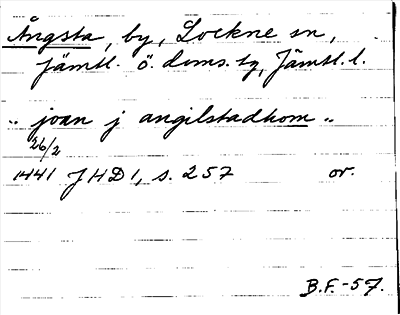 Ångsta, by, Lockne sn,
Jämtl. ö. doms. tg, Jämtl. l.
"joan j angilstadhom"
26/2
1441 JHD 1, s. 257 or.
B.F.-57.